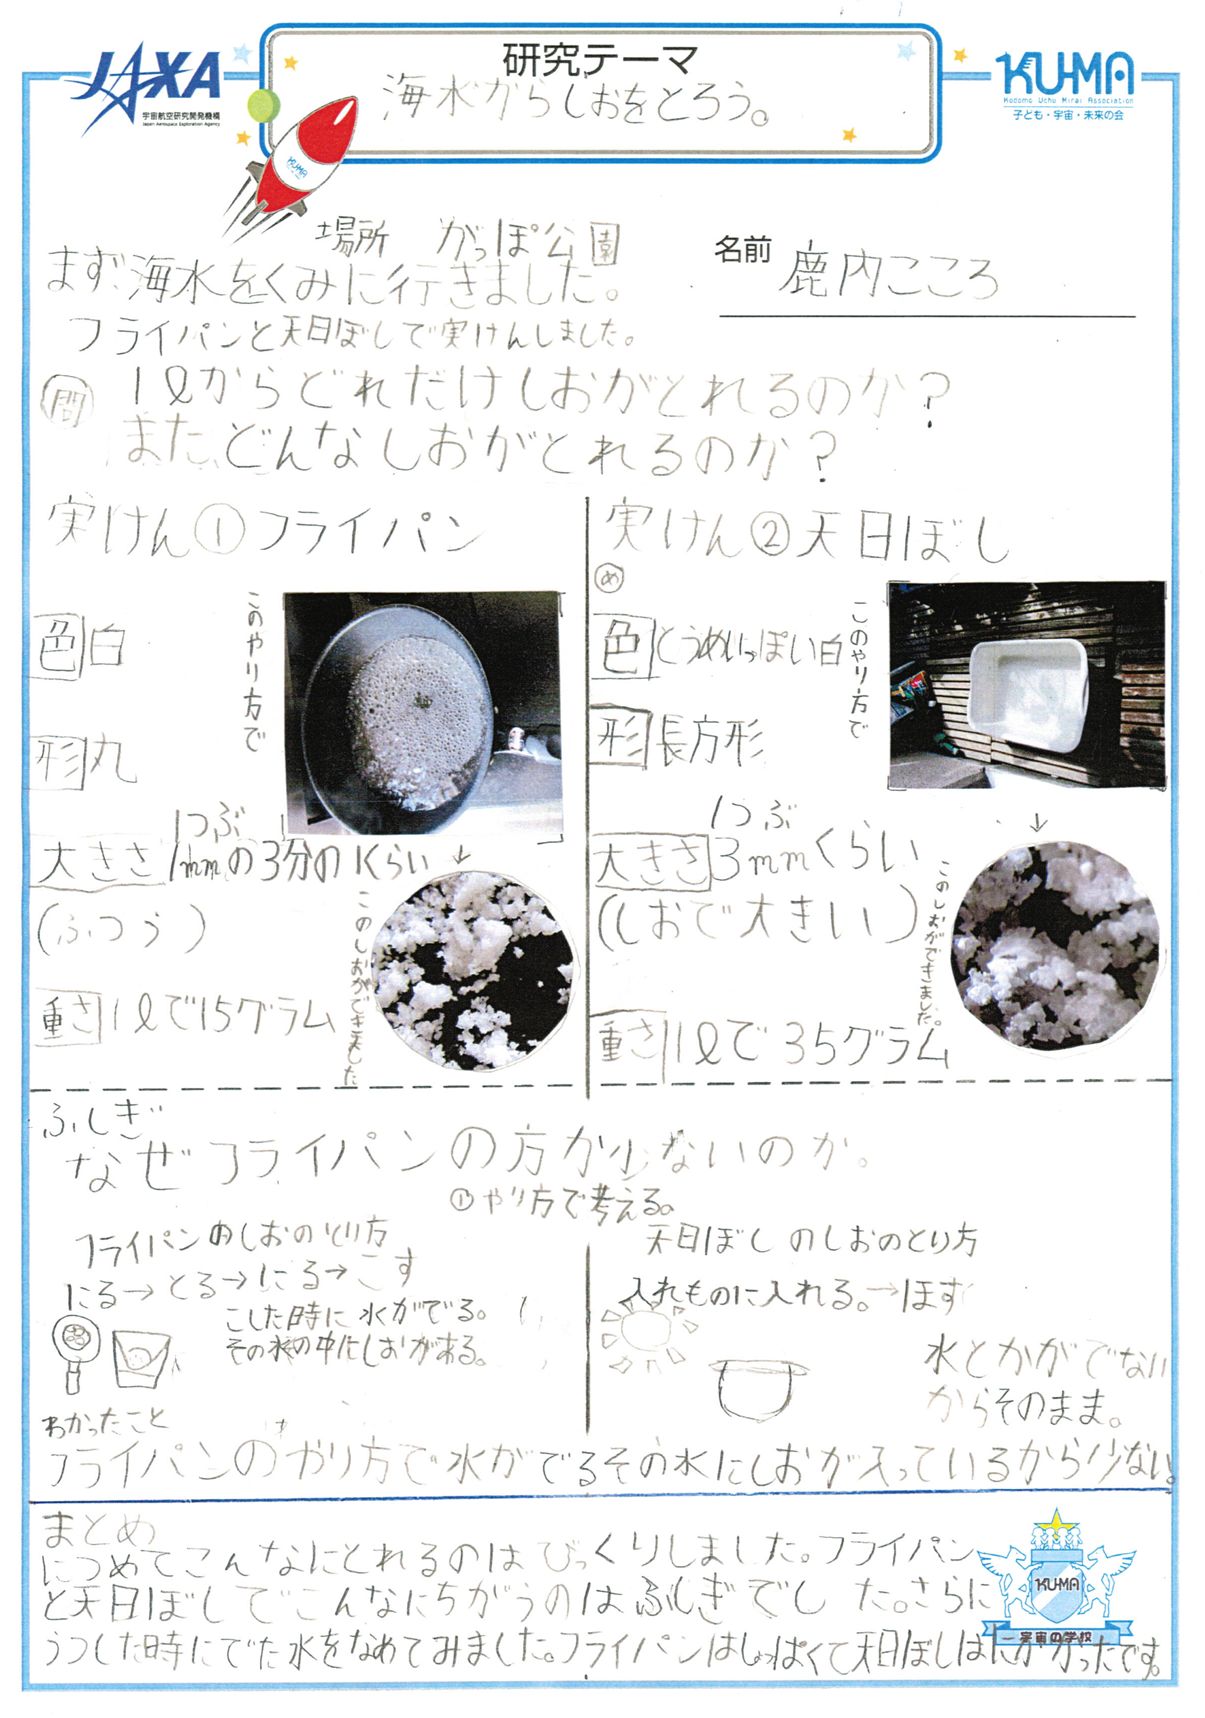 JAXA
宇宙航空研究開発機構
Japan Aerospace Exploration Agency
研究テーマ
海水からしおをとろう。
KUMA
Kodomo Uchu Mirai Association
子ども・宇宙・未来の会
KUMA
場所 がっぽ公園
名前 鹿内こころ
まず海水をくみに行きました。
フライパンと天日ぼしで実けんしました。
問 1ℓからどれだけしおがとれるのか?
また、どんなしおがとれるのか?
実けん①フライパン
色 白
形 丸
このやり方で
1つぶ
大きさ 1mmの3分の1くらい
(ふつう)
重さ 1ℓで15グラム
このしおができました
実けん②天日ぼし
め
色 とうめいっぽい白
形 長方形
このやり方で
1つぶ
大きさ 3mmくらい
(しおで大きい)
重さ 1ℓで35グラム
このしおができました。
ふしぎ
なぜフライパンの方が少ないのか。
①やり方で考える。
フライパンのしおのとり方
にる→とる→にる→こす
こした時に水がでる。
その水の中にしおがある。
天日ぼしのしおのとり方
入れものに入れる。→ほす
水とかがでない
からそのまま。
わかったこと
フライパンのやり方で水がでるその水にしおが入っているから少ない。
まとめ
につめてこんなにとれるのはびっくりしました。フライパン
と天日ぼしでこんなにちがうのはふしぎでした。さらに
うつした時にでた水をなめてみました。フライパンはしょっぱくて天日ぼしはにがかったです。
KUMA
宇宙の学校